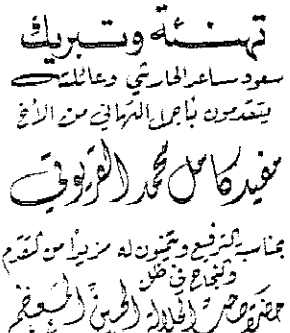 تهنئة وتبريك
سعود ساعد الحارثي وعائلته
يتقدمون بأجمل التهاني من الأخ
مفيد كامل محمد القريوتي
بمناسبة الترفيع ويتمنون له مزيداً من التقدم
والنجاح في ظل
حضرة صاحب الجلالة الحسين المعظم